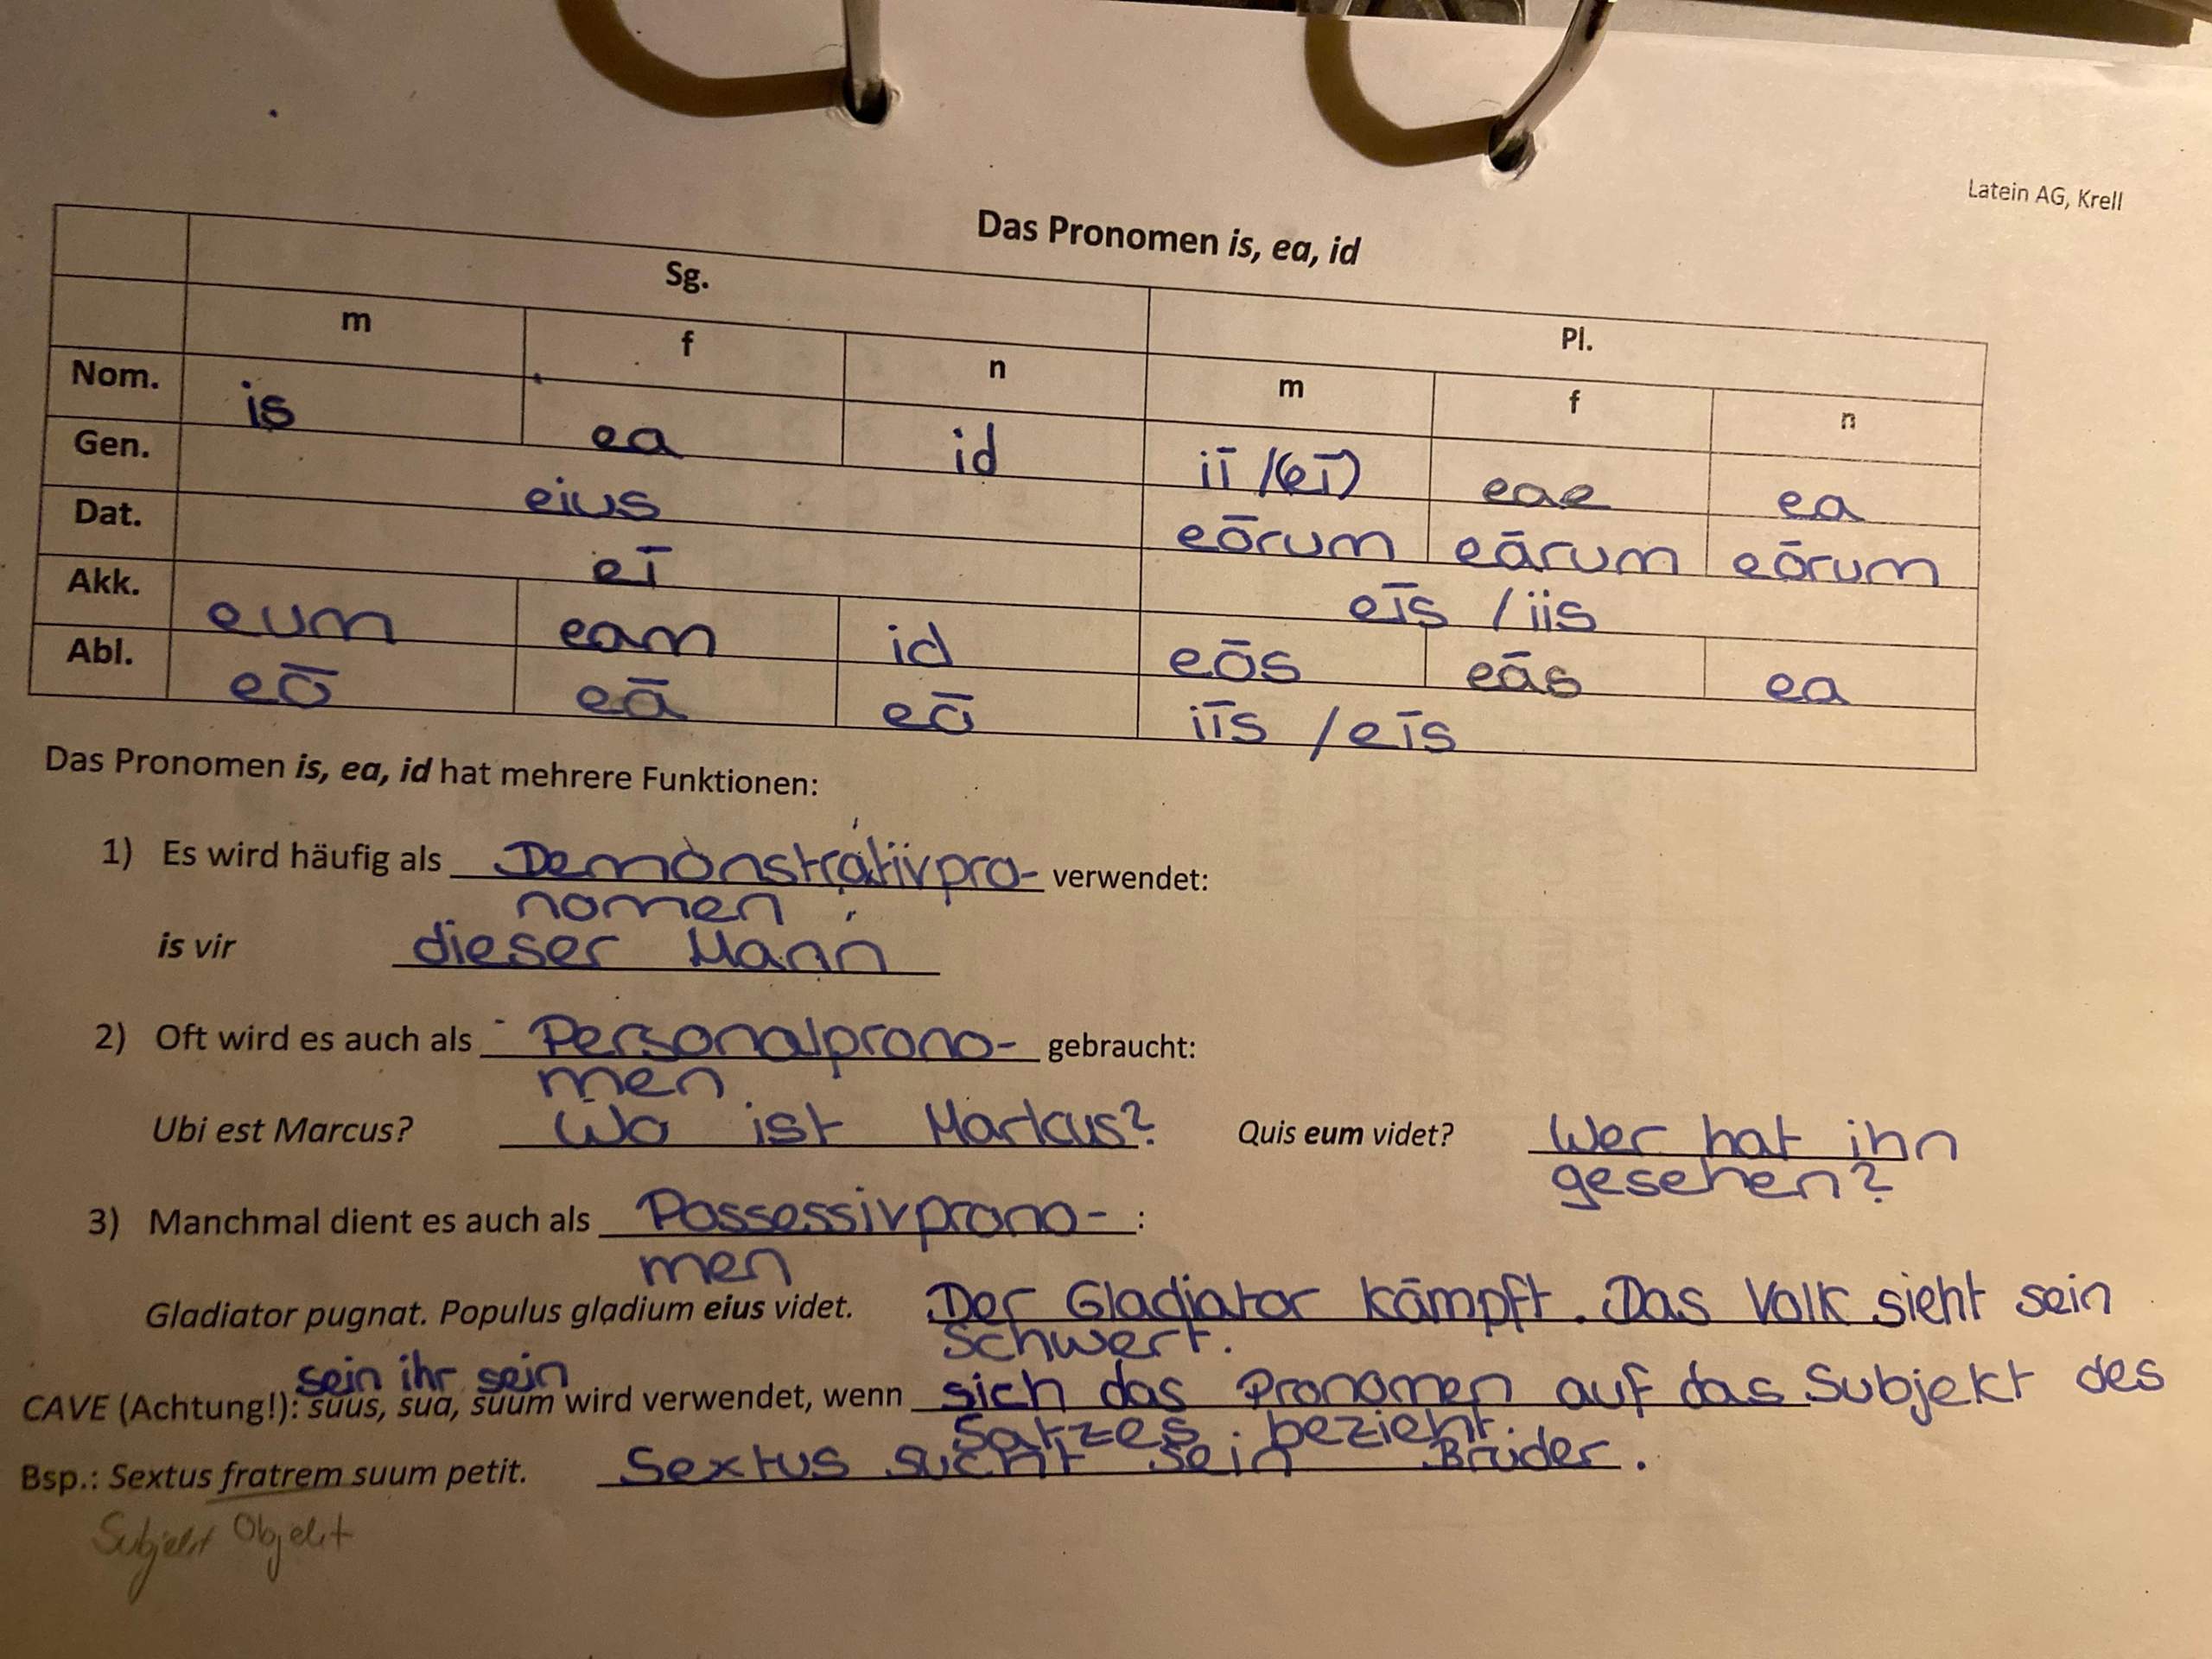 Latein AG, Krell
Das Pronomen is, ea, id
Sg. Pl.
m f n m f n
Nom. is ea id iī /(eī) eae ea
Gen. eius eōrum eārum eōrum
Dat. eī eīs / iis
Akk. eum eam id eōs eās ea
Abl. eō eā eō iīs / eīs
Das Pronomen is, ea, id hat mehrere Funktionen:
1) Es wird häufig als Demonstrativpro- verwendet:
nomen
is vir dieser Mann
2) Oft wird es auch als Personalprono- gebraucht:
men
Ubi est Marcus? Wo ist Markus? Quis eum videt? Wer hat ihn
gesehen?
3) Manchmal dient es auch als Possessivprono- :
men
Gladiator pugnat. Populus gladium eius videt. Der Gladiator kämpft. Das Volk sieht sein
Schwert.
sein ihr sein
CAVE (Achtung!): suus, sua, suum wird verwendet, wenn sich das Pronomen auf das Subjekt des
Satzes bezieht.
Bsp.: Sextus fratrem suum petit. Sextus sucht sein Bruder.
Subjekt Objekt